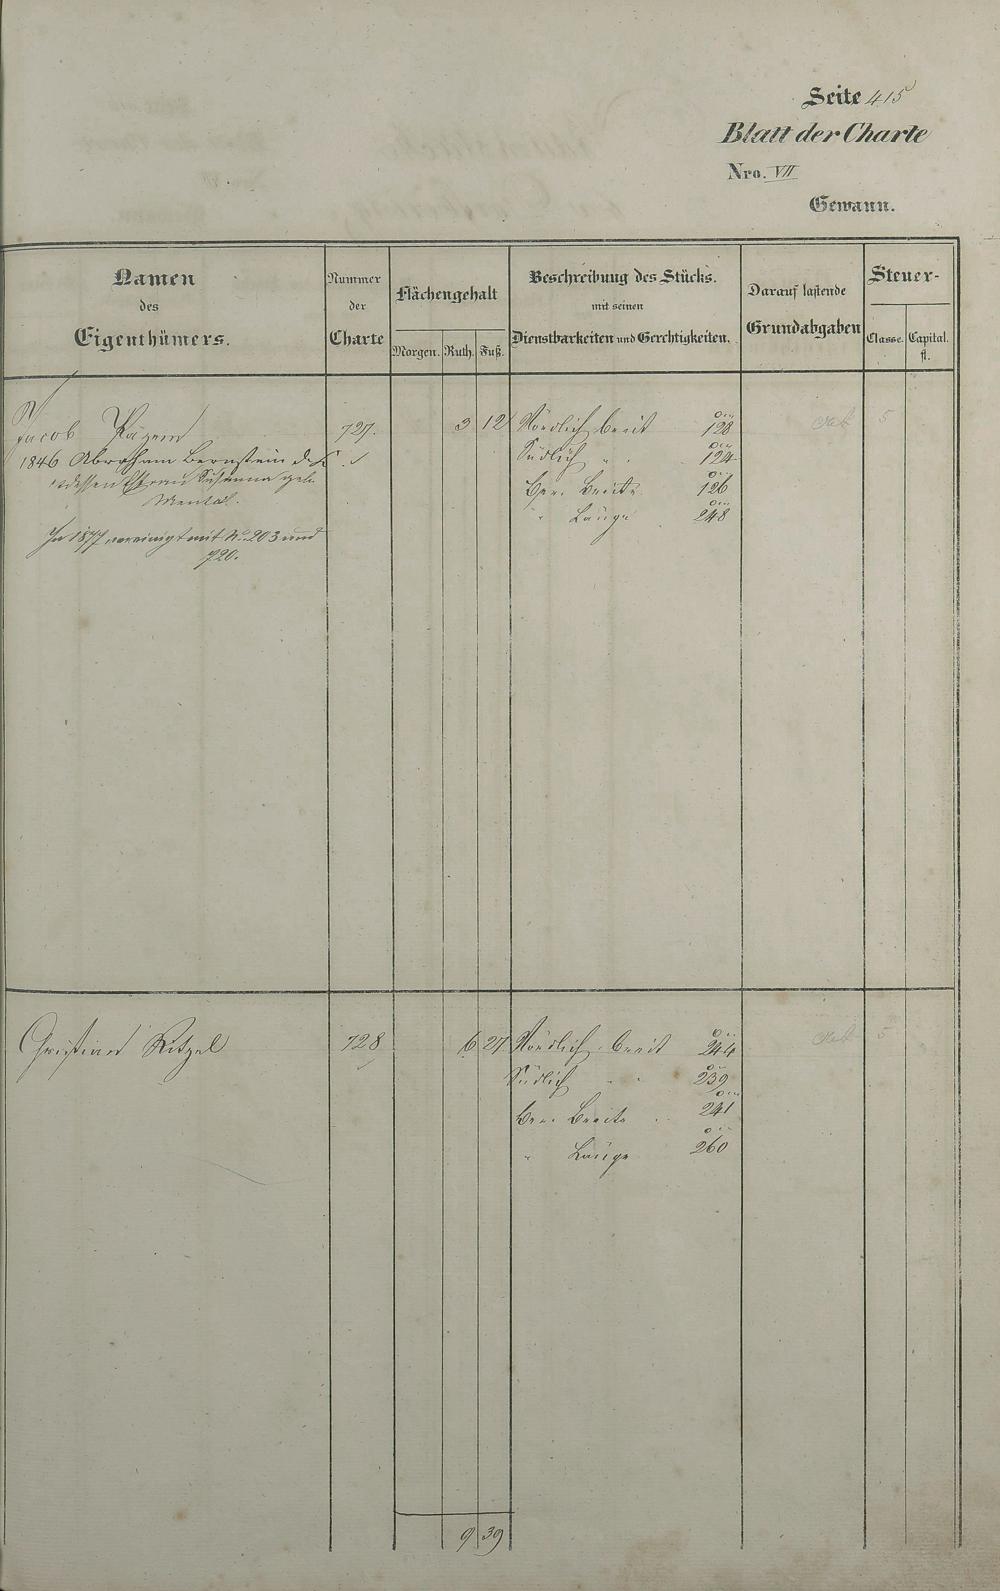 Seite 415
Blatt der Charte
Nro. VII
Gewann.
Namen
des
Eigenthümers.
Nummer
der
Charte
Flächengehalt
Morgen. Ruth. Fuß.
Beschreibung des Stücks.
mit seinen
Dienstbarkeiten und Gerechtigkeiten.
Darauf lastende
Grundabgaben
Steuer-
Classe. Capital.
fl.
Jacob 727. 3 12 Nördlich breit 128
1846 Abraham Bernstein Südlich " 124
u dessen Ehefrau Susanna geb. Ber. Breite 126
Mental. " Länge 248
In 1877 vereinigt mit No. 203 und
720.
5
Christian Ritzel 728 6 27 Nördlich breit 244
Südlich " " 239
Ber. Breite 241
" Länge 260
5
9 39